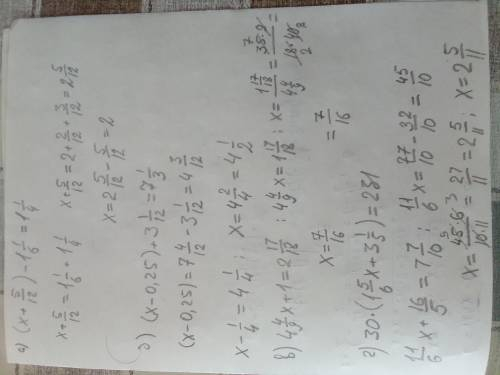 а) (x + 5/12) - 1 1/6 = 1 1/4
x + 5/12 = 1 1/6 + 1 1/4    x + 5/12 = 2 + 2/12 + 3/12 = 2 5/12
x = 2 5/12 - 5/12 = 2
б) (x - 0,25) + 3 1/12 = 7 1/3
(x - 0,25) = 7 4/12 - 3 1/12 = 4 3/12
x - 1/4 = 4 1/4 ; x = 4 2/4 = 4 1/2
в) 4 4/9 x + 1 = 2 17/18 ; 4 4/9 x = 1 17/18 ; x = 1 17/18 / 4 4/9 = 35·9 / 18·40 =
x = 7/16    = 7/16
г) 30·(1 5/6 x + 3 1/5) = 231
11/6 x + 16/5 = 7 7/10 ; 11/6 x = 77/10 - 32/10 = 45/10
x = 45·6 / 10·11 = 27/11 = 2 5/11 ; x = 2 5/11